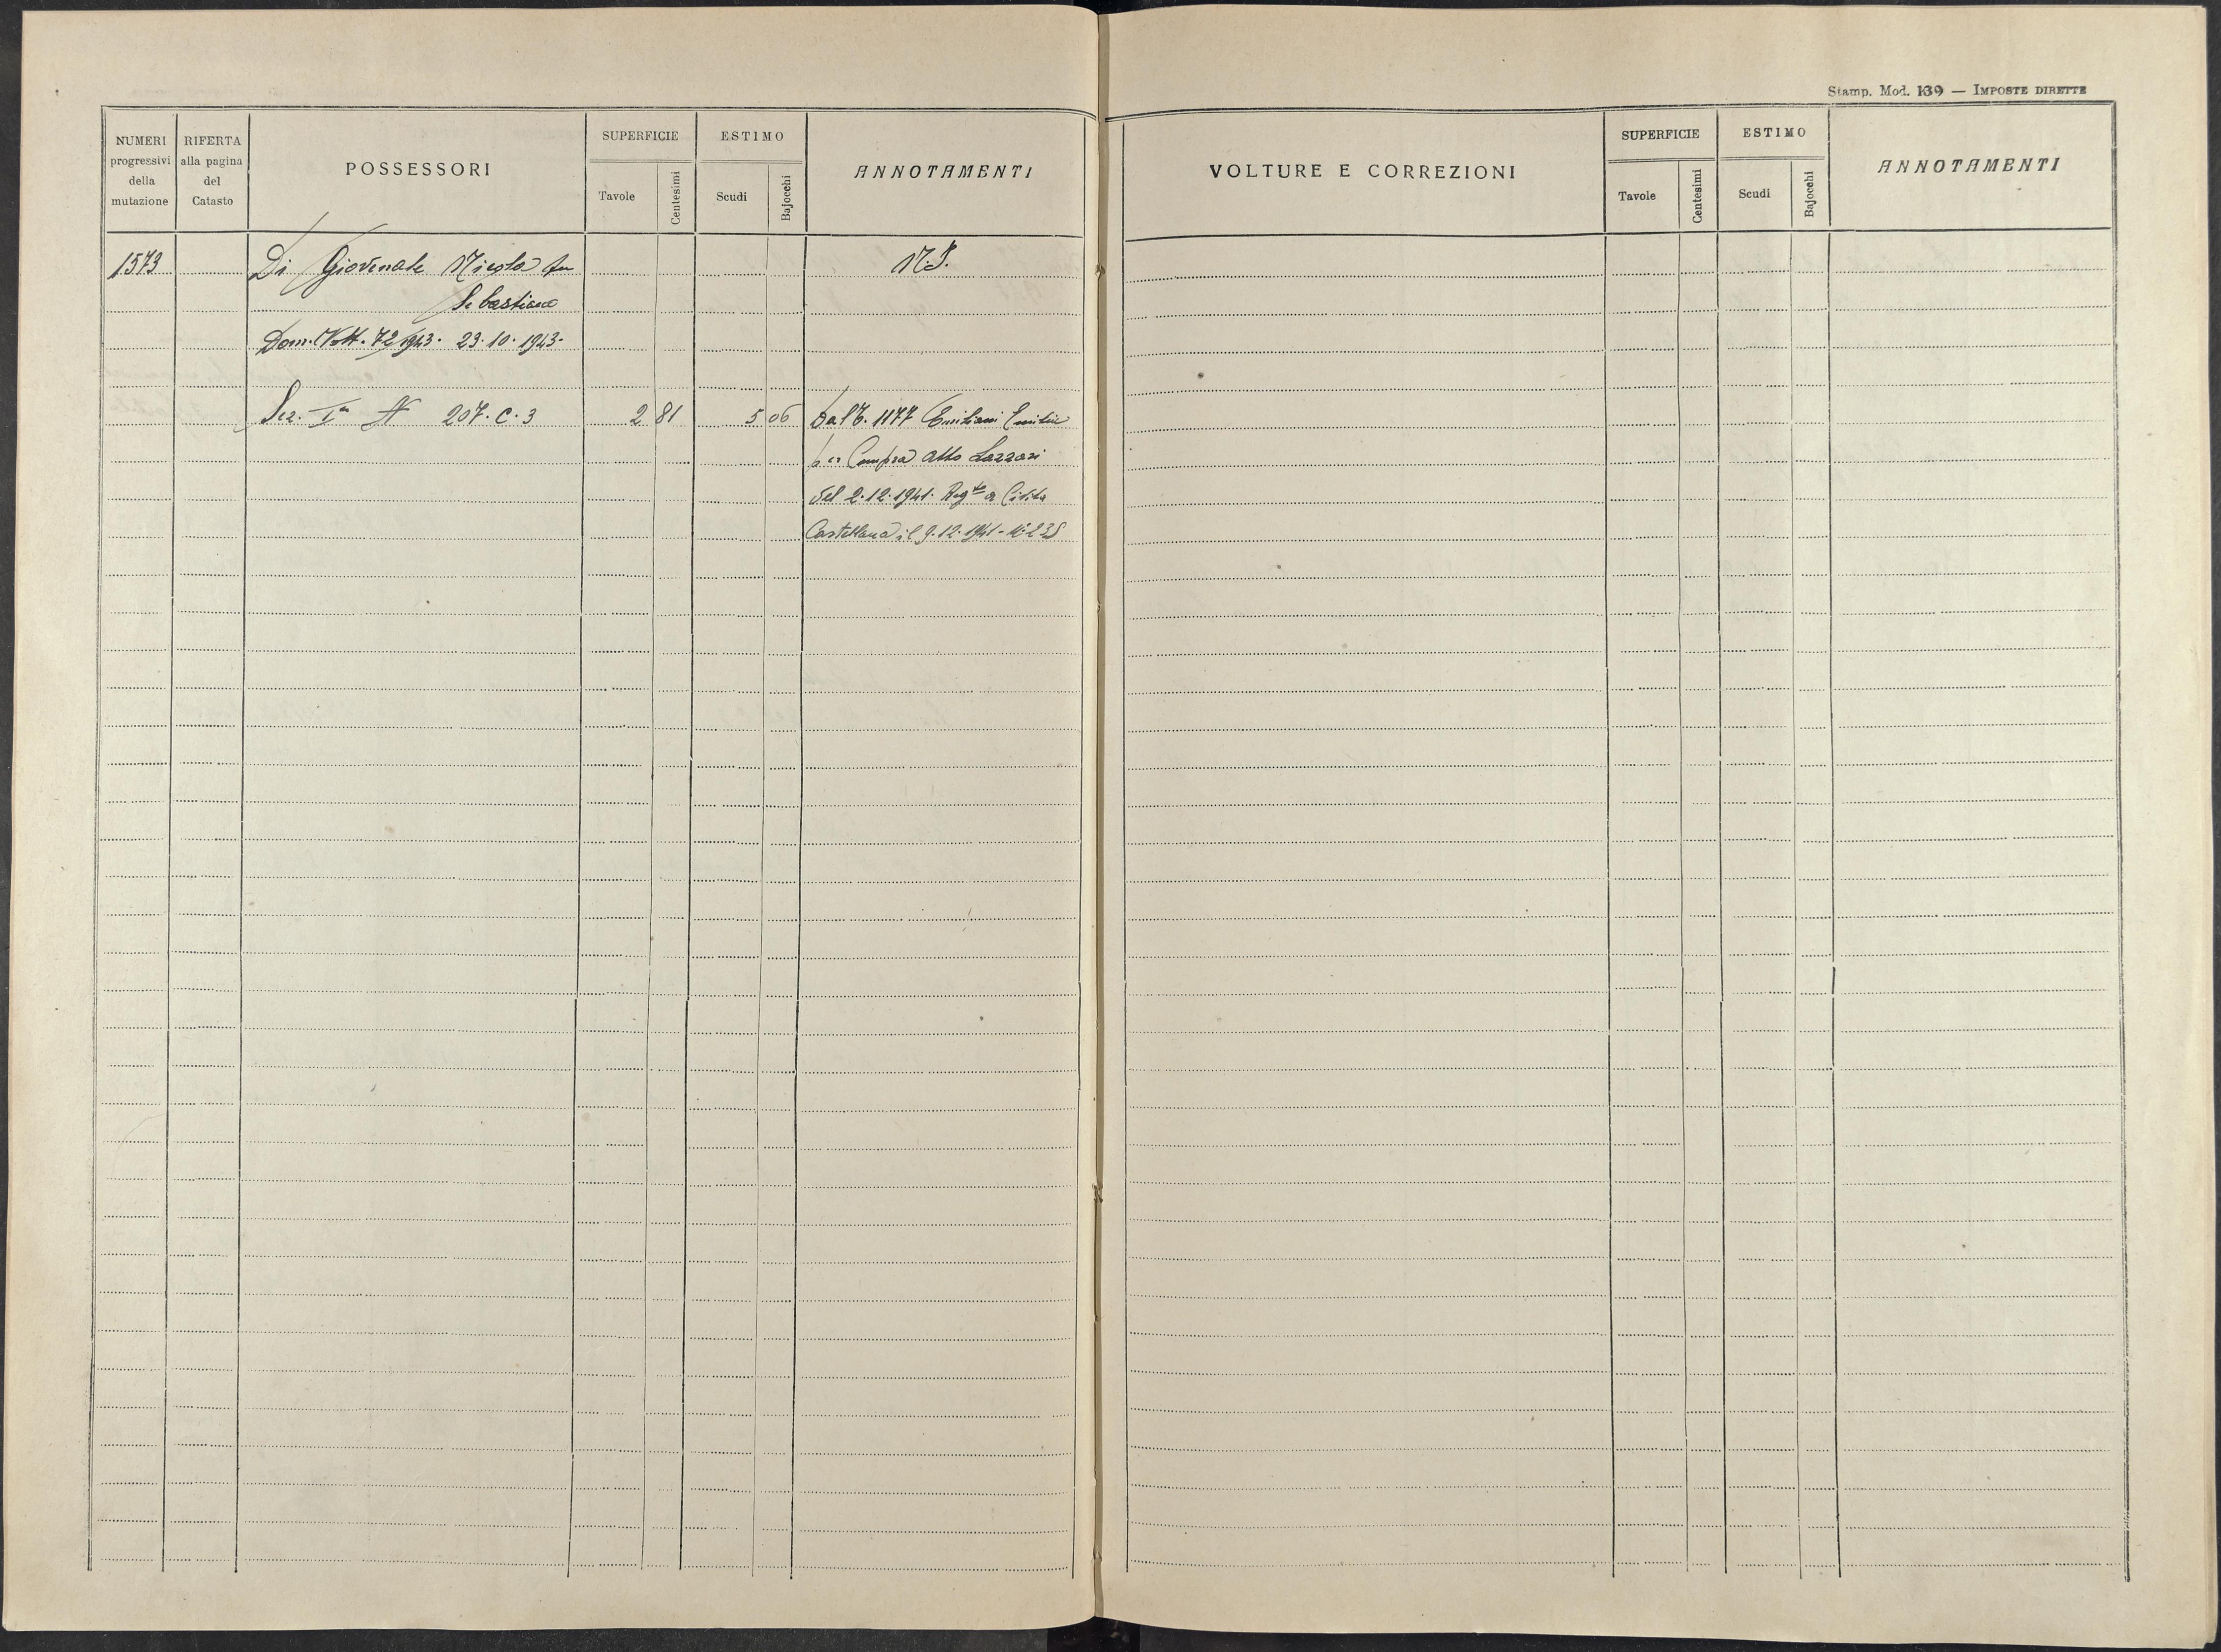 Stamp. Mod. 139 — IMPOSTE DIRETTE
NUMERI progressivi della mutazione
RIFERTA alla pagina del Catasto
POSSESSORI
SUPERFICIE
Tavole
Centesimi
ESTIMO
Scudi
Bajocchi
ANNOTAMENTI
VOLTURE E CORREZIONI
SUPERFICIE
Tavole
Centesimi
ESTIMO
Scudi
Bajocchi
ANNOTAMENTI
1573 Di Giovenale Nicola fu
Sebastiano
Dom. Volt. 72/1943. 23.10.1943.
Sez. Iª N 207. C. 3 2 81 5 06 Dal 6. 1177 Emiliani Emilio
per Compra atto Lazzari
del 2.12.1941. Regto a Civita
Castellana il 9.12.1941 - N°